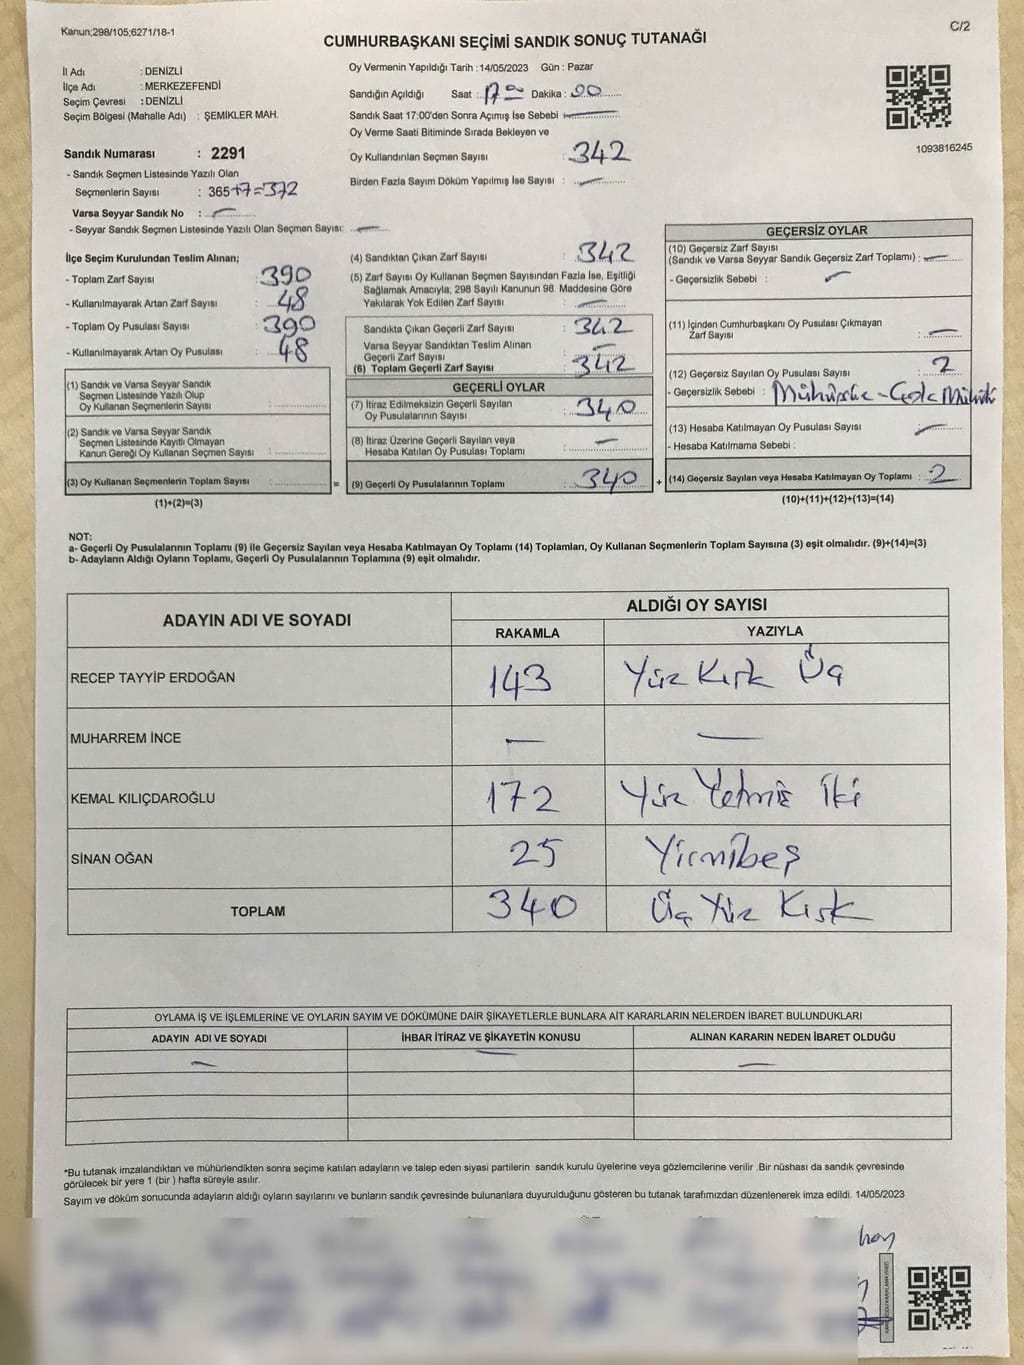 Kanun;298/105;6271/18-1
C/2
CUMHURBAŞKANI SEÇİMİ SANDIK SONUÇ TUTANAĞI
İl Adı : DENİZLİ
İlçe Adı : MERKEZEFENDİ
Seçim Çevresi : DENİZLİ
Seçim Bölgesi (Mahalle Adı) : ŞEMİKLER MAH.
Oy Vermenin Yapıldığı Tarih :14/05/2023 Gün : Pazar
Sandığın Açıldığı Saat : 17⁰⁰ Dakika : 00
Sandık Saat 17:00'den Sonra Açımış İse Sebebi : —
Oy Verme Saati Bitiminde Sırada Bekleyen ve
Oy Kullandırılan Seçmen Sayısı : 342
Birden Fazla Sayım Döküm Yapılmış İse Sayısı : —
1093816245
Sandık Numarası : 2291
- Sandık Seçmen Listesinde Yazılı Olan
Seçmenlerin Sayısı : 365+7=372
Varsa Seyyar Sandık No : —
- Seyyar Sandık Seçmen Listesinde Yazılı Olan Seçmen Sayısı: —
İlçe Seçim Kurulundan Teslim Alınan;
- Toplam Zarf Sayısı : 390
- Kullanılmayarak Artan Zarf Sayısı : 48
- Toplam Oy Pusulası Sayısı : 390
- Kullanılmayarak Artan Oy Pusulası : 48
(1) Sandık ve Varsa Seyyar Sandık
Seçmen Listesinde Yazılı Olup
Oy Kullanan Seçmenlerin Sayısı :
(2) Sandık ve Varsa Seyyar Sandık
Seçmen Listesinde Kayıtlı Olmayan
Kanun Gereği Oy Kullanan Seçmen Sayısı :
(3) Oy Kullanan Seçmenlerin Toplam Sayısı :
(1)+(2)=(3)
(4) Sandıktan Çıkan Zarf Sayısı : 342
(5) Zarf Sayısı Oy Kullanan Seçmen Sayısından Fazla İse, Eşitliği
Sağlamak Amacıyla; 298 Sayılı Kanunun 98. Maddesine Göre
Yakılarak Yok Edilen Zarf Sayısı : —
Sandıkta Çıkan Geçerli Zarf Sayısı : 342
Varsa Seyyar Sandıktan Teslim Alınan
Geçerli Zarf Sayısı : —
(6) Toplam Geçerli Zarf Sayısı : 342
GEÇERLİ OYLAR
(7) İtiraz Edilmeksizin Geçerli Sayılan
Oy Pusulalarının Sayısı : 340
(8) İtiraz Üzerine Geçerli Sayılan veya
Hesaba Katılan Oy Pusulası Toplamı : —
= (9) Geçerli Oy Pusulalarının Toplamı : 340
GEÇERSİZ OYLAR
(10) Geçersiz Zarf Sayısı
(Sandık ve Varsa Seyyar Sandık Geçersiz Zarf Toplamı) : —
- Geçersizlik Sebebi : —
(11) İçinden Cumhurbaşkanı Oy Pusulası Çıkmayan
Zarf Sayısı : —
(12) Geçersiz Sayılan Oy Pusulası Sayısı : 2
- Geçersizlik Sebebi :
(13) Hesaba Katılmayan Oy Pusulası Sayısı : —
- Hesaba Katılmama Sebebi :
+ (14) Geçersiz Sayılan veya Hesaba Katılmayan Oy Toplamı : 2
(10)+(11)+(12)+(13)=(14)
NOT:
a- Geçerli Oy Pusulalarının Toplamı (9) ile Geçersiz Sayılan veya Hesaba Katılmayan Oy Toplamı (14) Toplamları, Oy Kullanan Seçmenlerin Toplam Sayısına (3) eşit olmalıdır. (9)+(14)=(3)
b- Adayların Aldığı Oyların Toplamı, Geçerli Oy Pusulalarının Toplamına (9) eşit olmalıdır.
ADAYIN ADI VE SOYADI
ALDIĞI OY SAYISI
RAKAMLA YAZIYLA
RECEP TAYYİP ERDOĞAN 143 Yüz Kırk Üç
MUHARREM İNCE — —
KEMAL KILIÇDAROĞLU 172 Yüz Yetmiş İki
SİNAN OĞAN 25 Yirmibeş
TOPLAM 340 Üç Yüz Kırk
OYLAMA İŞ VE İŞLEMLERİNE VE OYLARIN SAYIM VE DÖKÜMÜNE DAİR ŞİKAYETLERLE BUNLARA AİT KARARLARIN NELERDEN İBARET BULUNDUKLARI
ADAYIN ADI VE SOYADI İHBAR İTİRAZ VE ŞİKAYETİN KONUSU ALINAN KARARIN NEDEN İBARET OLDUĞU
— — —
*Bu tutanak imzalandıktan ve mühürlendikten sonra seçime katılan adayların ve talep eden siyasi partilerin sandık kurulu üyelerine veya gözlemcilerine verilir .Bir nüshası da sandık çevresinde
görülecek bir yere 1 (bir ) hafta süreyle asılır.
Sayım ve döküm sonucunda adayların aldığı oyların sayılarını ve bunların sandık çevresinde bulunanlara duyurulduğunu gösteren bu tutanak tarafımızdan düzenlenerek imza edildi. 14/05/2023